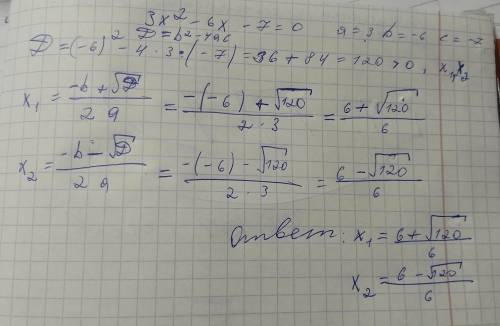 3x² - 6x - 7 = 0   a = 3 b = -6 c = -7
D = b² - 4ac
D = (-6)² - 4 · 3 · (-7) = 36 + 84 = 120 > 0, x₁x₂
x₁ = (-b + √D)/(2a) = (-(-6) + √120)/(2 · 3) = (6 + √120)/6
x₂ = (-b - √D)/(2a) = (-(-6) - √120)/(2 · 3) = (6 - √120)/6
Ответ: x₁ = (6 + √120)/6
x₂ = (6 - √120)/6